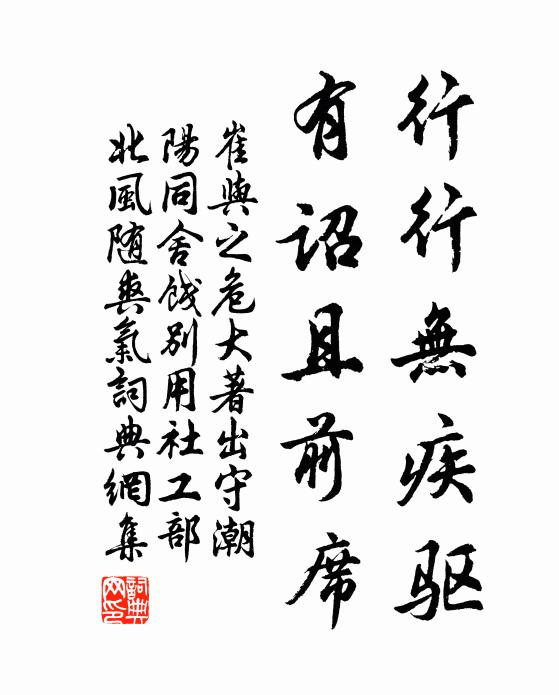 行行無疾驱
有詔且前席
崔與之危大著出守潮
陽同舍餞别用社工部
北風随爽氣詞典網集
詞典網印